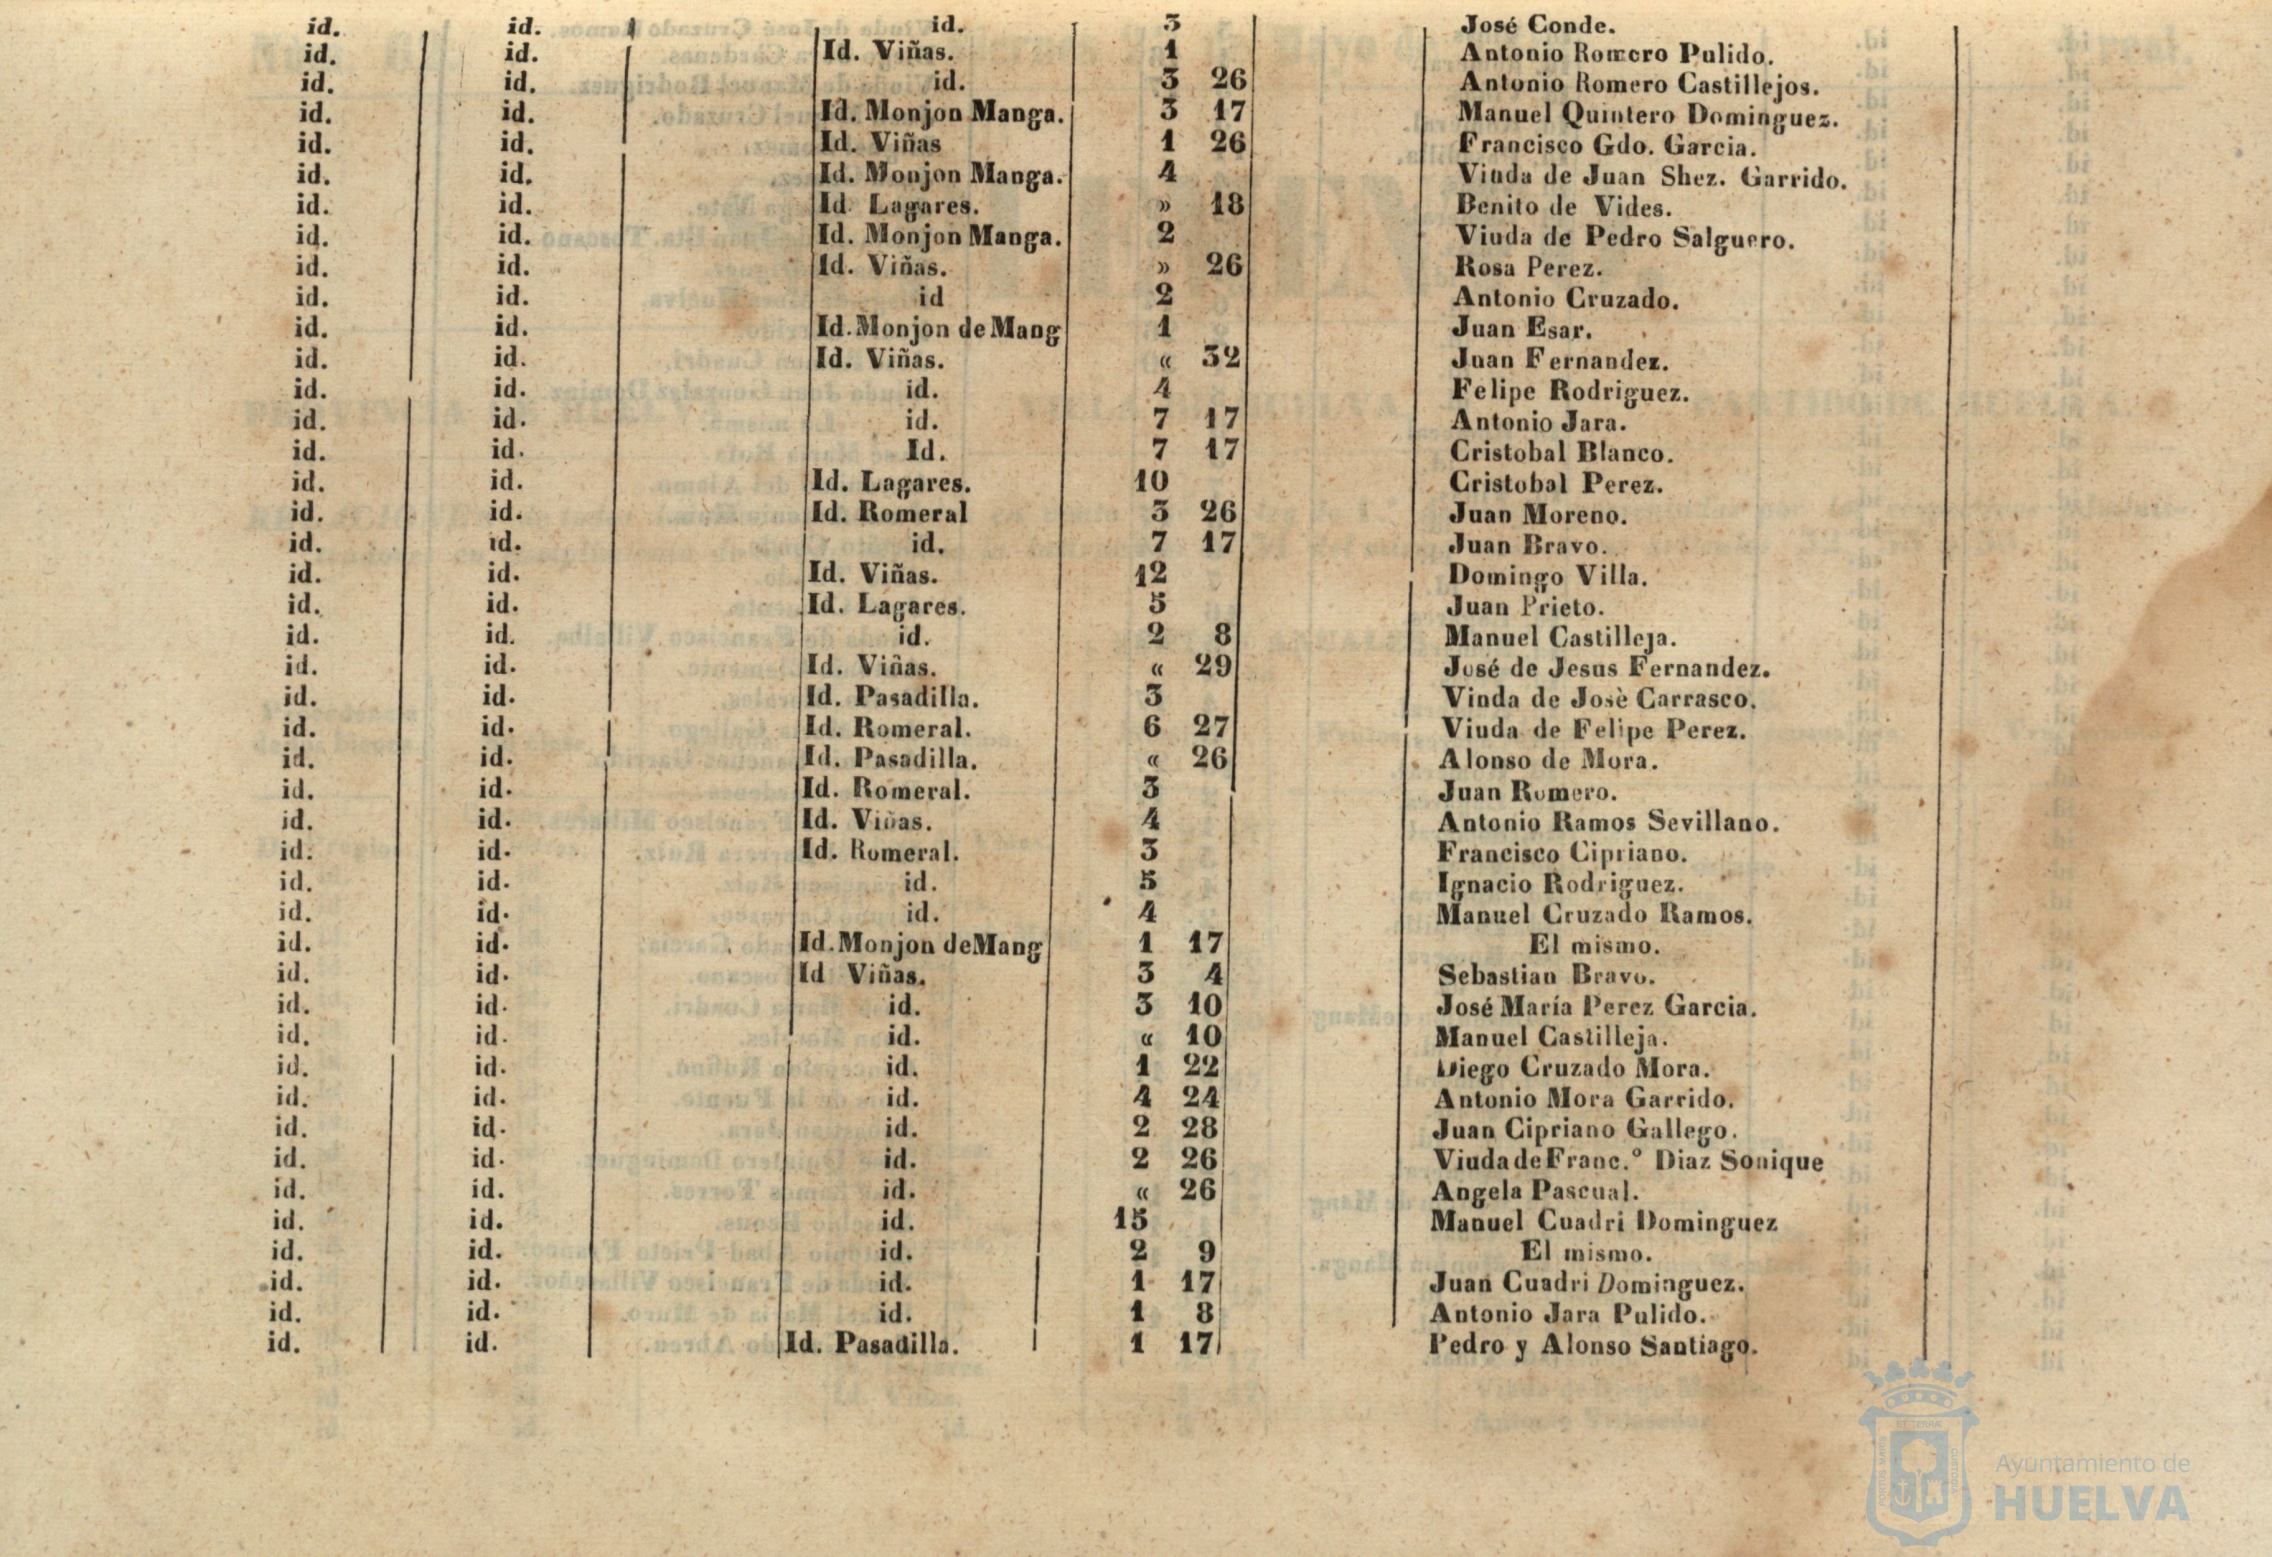 id. id. id. 3 José Conde.
id. id. Id. Viñas. 1 Antonio Romero Pulido.
id. id. id. 3 26 Antonio Romero Castillejos.
id. id. Id. Monjon Manga. 3 17 Manuel Quintero Dominguez.
id. id. Id. Viñas 1 26 Francisco Gdo. Garcia.
id. id. Id. Monjon Manga. 4 Viuda de Juan Shez. Garrido.
id. id. Id. Lagares. » 18 Benito de Vides.
id. id. Id. Monjon Manga. 2 Viuda de Pedro Salguero.
id. id. Id. Viñas. » 26 Rosa Perez.
id. id. id 2 Antonio Cruzado.
id. id. Id. Monjon de Mang 1 Juan Esar.
id. id. Id. Viñas. « 32 Juan Fernandez.
id. id. id. 4 Felipe Rodriguez.
id. id. id. 7 17 Antonio Jara.
id. id. Id. 7 17 Cristobal Blanco.
id. id. Id. Lagares. 10 Cristobal Perez.
id. id. Id. Romeral 3 26 Juan Moreno.
id. id. id. 7 17 Juan Bravo.
id. id. Id. Viñas. 12 Domingo Villa.
id. id. Id. Lagares. 5 Juan Prieto.
id. id. id. 2 8 Manuel Castilleja.
id. id. Id. Viñas. « 29 José de Jesus Fernandez.
id. id. Id. Pasadilla. 3 Vinda de Josè Carrasco.
id. id. Id. Romeral. 6 27 Viuda de Felipe Perez.
id. id. Id. Pasadilla. « 26 Alonso de Mora.
id. id. Id. Romeral. 3 Juan Romero.
id. id. Id. Viñas. 4 Antonio Ramos Sevillano.
id. id. Id. Romeral. 3 Francisco Cipriano.
id. id. id. 5 Ignacio Rodriguez.
id. id. id. 4 Manuel Cruzado Ramos.
id. id. Id. Monjon de Mang 1 17 El mismo.
id. id. Id Viñas. 3 4 Sebastian Bravo.
id. id. id. 3 10 José María Perez Garcia.
id. id. id. « 10 Manuel Castilleja.
id. id. id. 1 22 Diego Cruzado Mora.
id. id. id. 4 24 Antonio Mora Garrido.
id. id. id. 2 28 Juan Cipriano Gallego.
id. id. id. 2 26 Viuda de Franc.º Diaz Sonique
id. id. id. « 26 Angela Pascual.
id. id. id. 15 Manuel Cuadri Dominguez
id. id. id. 2 9 El mismo.
id. id. id. 1 17 Juan Cuadri Dominguez.
id. id. id. 1 8 Antonio Jara Pulido.
id. id. Id. Pasadilla. 1 17 Pedro y Alonso Santiago.
Ayuntamiento de
HUELVA